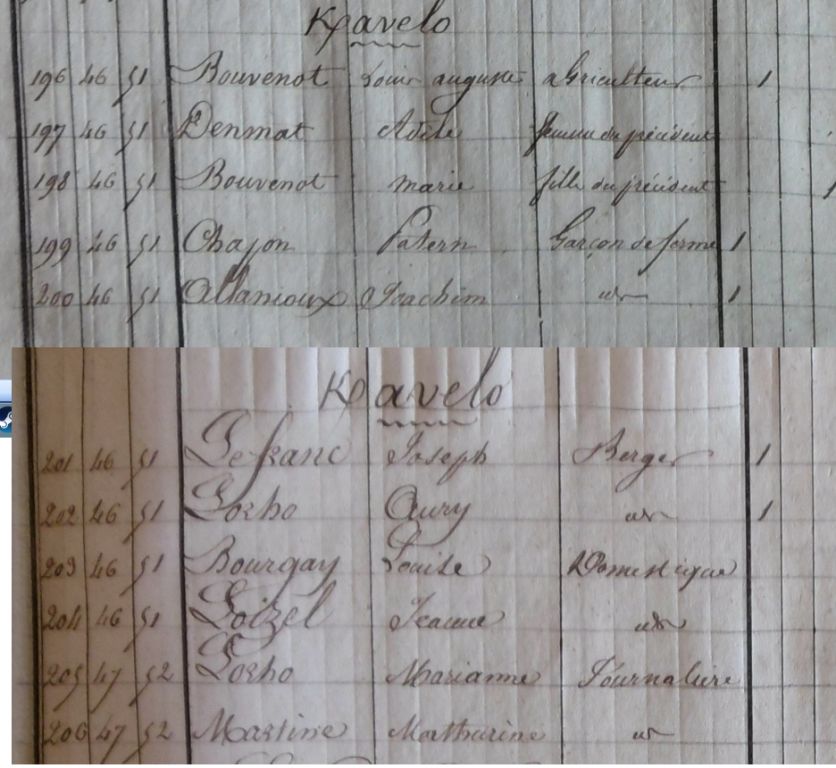 Kavelo
196 46 51 Bouvenot Louis auguste aGriculteur 1
197 46 51 Denmat Adele femme du précédent
198 46 51 Bouvenot marie fille du précédent 1
199 46 51 Chapon Patern Garçon de ferme 1
200 46 51 Allanioux Joachim idr 1
Kavelo
201 46 51 Lefranc Joseph Berger 1
202 46 51 Lorho Aury idr 1
203 46 51 Bourgay Louise Domestique
204 46 51 Loizel Jeanne idr
205 47 52 Lorho Marianne Journalière
206 47 52 Martine Mathurine idr